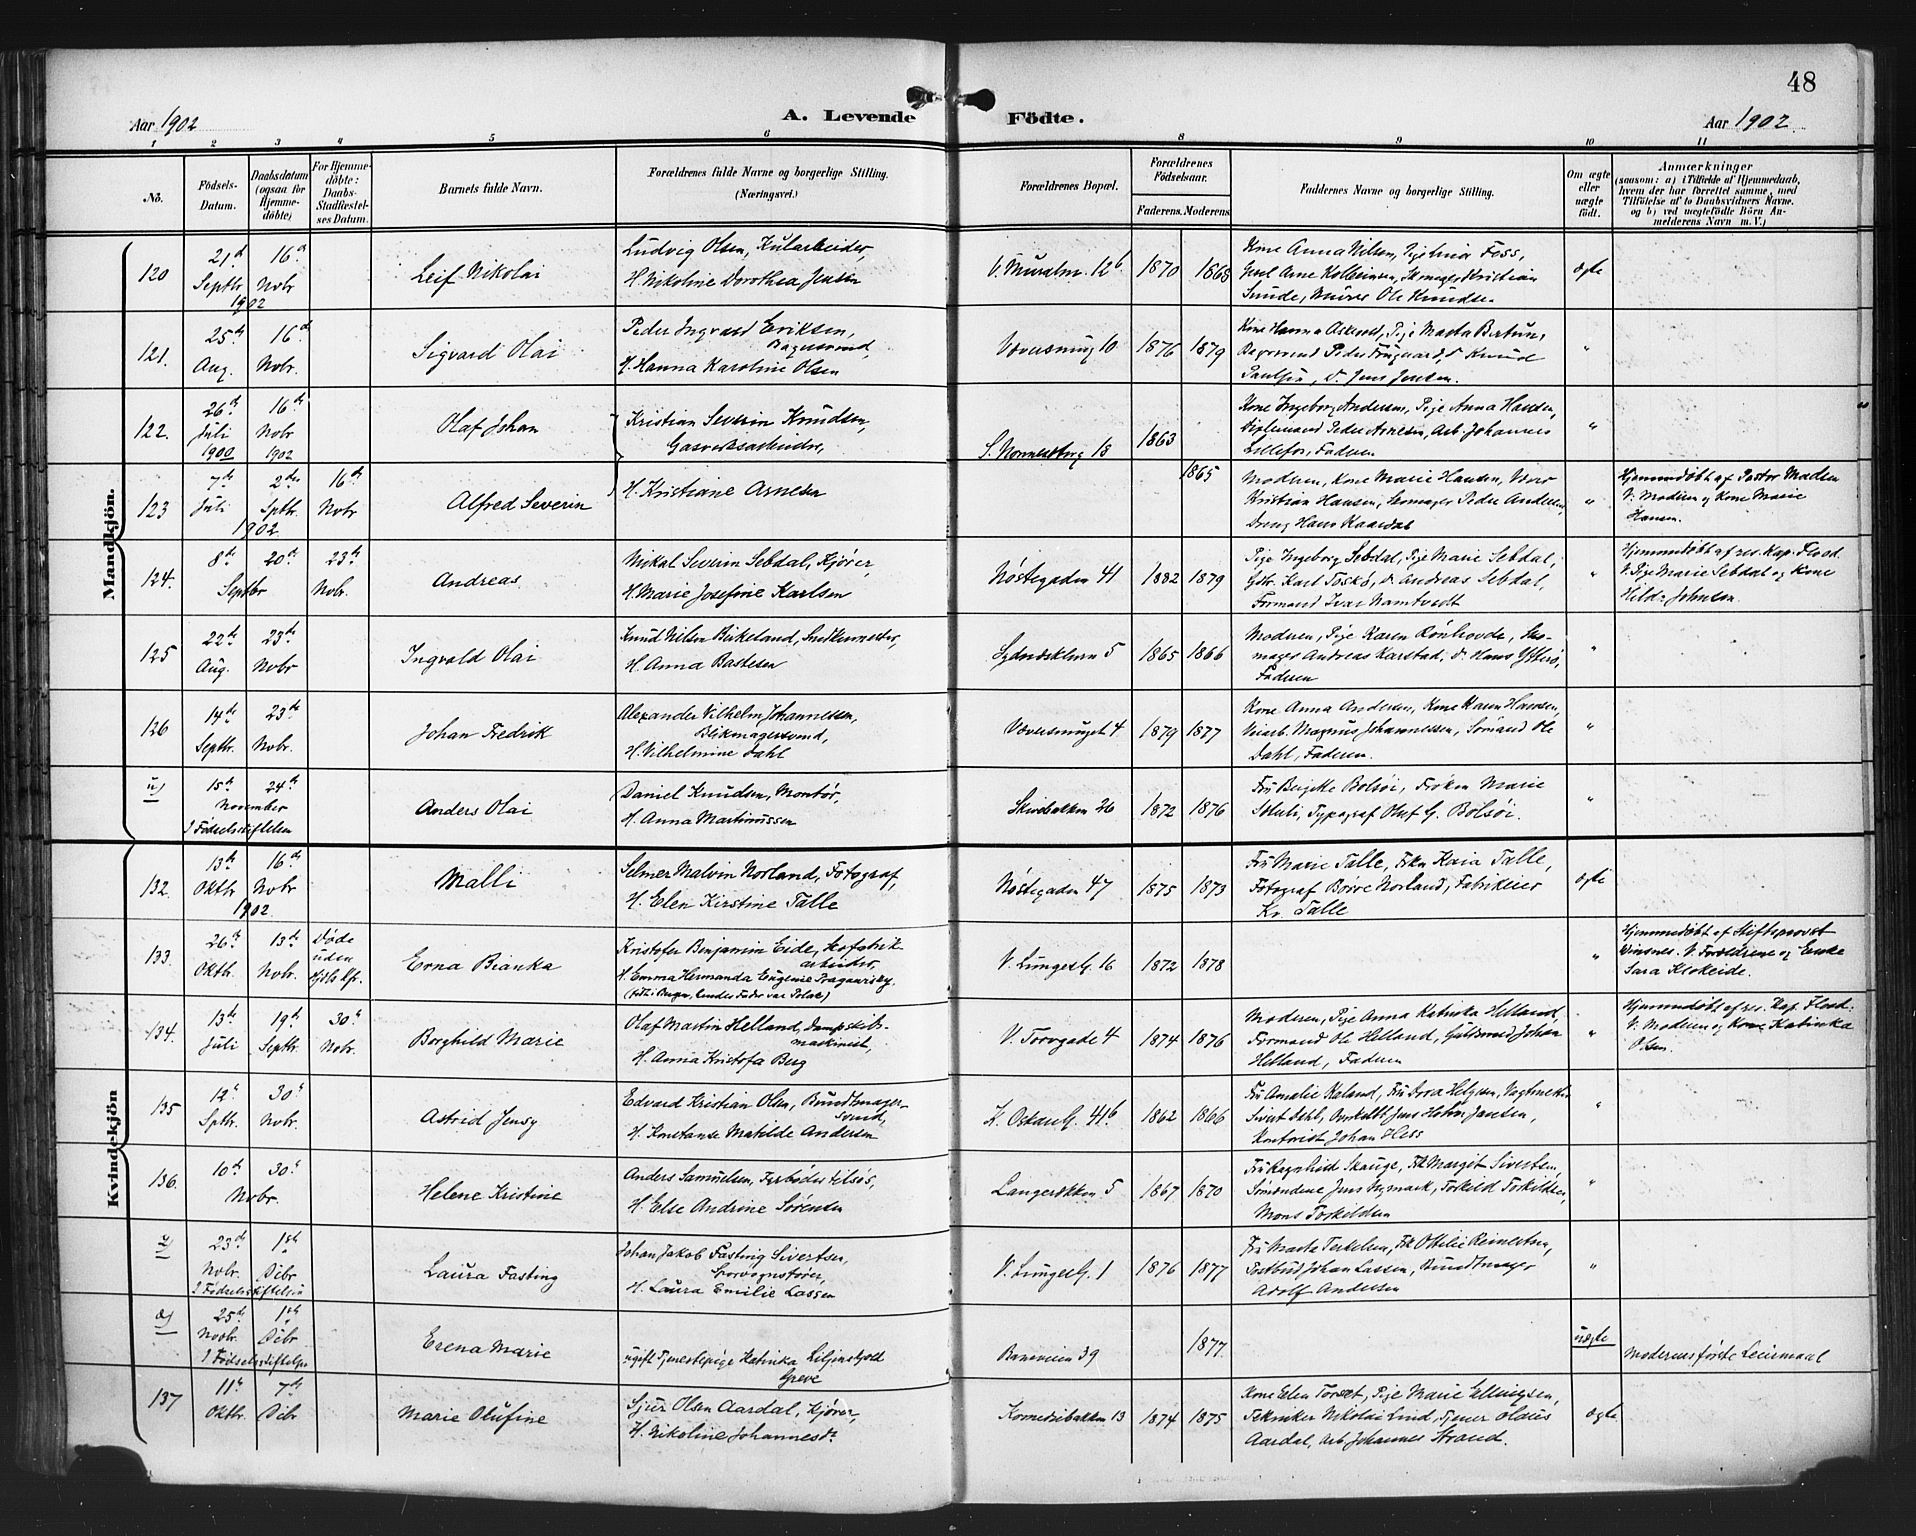 48
Aar 1902
A. Levende Födte.
Aar 1902
1 2 3 4 5 6 8 9 10 11
No.
Födsels-Datum.
Daabsdatum (ogsaa for Hjemme-döbte)
For Hjemme-döbte: Daabs-Stadfæstel-ses Datum.
Barnets fulde Navn.
Forældrenes fulde Navne og borgerlige Stilling.
(Næringsvei.)
Forældrenes Bopæl.
Forældrenes Födselsaar.
Faderens. Moderens.
Faddernes Navne og borgerlige Stilling.
Om ægte eller uægte födt.
Anmærkninger
(saasom: a) i Tilfælde af Hjemmedaab,
hvem der har forrettet samme, med
Tilföielse af to Daabsvidners Navne.
og b) ved uægtefödte Börn An-
melderens Navn m. V.)
Mandkjön.
120 21de Septbr 16de Novbr 1902
Leif Nikolai
Ludvig Olsen, Kularbeider,
H. Nikoline Dorothea Jensen
V. Muralm. 12b 1870 1868
Kone Anna Nilsen, Pige Lina Foss,
Gesel Arne Kolbeinsen, Skomager Kristian
Sunde, Murer Ole Knudsen
ægte
121. 25de Aug. 16de Novbr.
Sigvard Olai
Peder Ingvard Eriksen,
Bagersvend,
H. Hanna Karoline Olsen
Væversmug 10 1876 1879
Paulsen, d. Jens Jensen.
"
122. 26de Juli 1900 16de Novbr 1902
Olaf Johan
Kristian Severin Knudsen,
Gasverksarbeider,
S. Nornesborg 18 1863
Kone Ingeborg Andersen, Pige Anna Hansen,
Peder Arnesen, Arb. Johannes
Lillefos, Faderen
"
123 7de Juli 2den Septbr. 1902 16de Novbr
Alfred Severin
H. Kristiane Arnesen
1865
Moderen, Kone Marie Hansen,
Kristian Hansen, Skomager Peder Andersen,
Dreng Hans Kaardal
"
Hjemmedøbt af Pastor Madsen
V. Modren og Kone Marie
Hansen.
124. 8de 20de Septbr 23de Novbr.
Andreas
Mikal Severin Sebdal, Kjører,
H. Marie Josefine Karlsen
Nøstegaden 41 1882 1879
Pige Ingeborg Sebdal, Pige Marie Sebdal,
Gstr. Karl Toskø, d. Andreas Sebdal,
Formand Ivar Namtvedt
"
Hjemmedøbt af res. Kap. Flood
V. Pige Marie Sebdal og Kone
Hilda Johnsen.
125 22de Aug. 23de Novbr
Ingvald Olai
Knud Nilsen Birkeland, Snedkermester,
H. Anna Bastesen
Sydneskleven 5 1865 1866
Moderen, Pige Karen Rønhovde, Sko-
mager Andreas Karstad, d. Hans Ytterø,
Faderen
"
126 14de Septbr. 23de Novbr.
Johan Fredrik
Alexander Vilhelm Johannessen,
Blikmagersvend,
H. Vilhelmine Dahl
Væversmuget 4 1879 1877
Kone Anna Andersen, Kone Karen Hansen,
Veiarb. Magnus Johannessen, Sømand Ole
Dahl, Faderen.
"
u) 15de 24de November
I Fødselsstiftelsen
Anders Olai
Daniel Knudsen, Montør,
H. Anna Martinussen
Skivebakken 26 1872 1876
Fru Birgitte Bolsøi, Frøken Marie
Schuli, Typograf Oluf G. Bolsøi.
"
Kvindekjön
132. 13de Oktbr 16de Novbr 1902
Malli
Selmer Malvin Norland, Fotograf,
H. Elen Kirstine Talle
Nøstegaden 47 1875 1873
Fru Marie Talle, Frkn Kaia Talle,
Fotograf Børre Norland, Fabrikeier
Kr. Talle
ægte
133. 26de Oktbr. 13de Novbr. Døde uden
Erna Bianka
Kristofer Benjamin Eide, Skofabrik-
arbeider,
H. Emma Hermanda Eugenie
(Født i Bergen, hendes Fader var Polak)
V. Lungeg. 16 1872 1878
"
Hjemmedøbt af Stiftsprovst
V. Forældrene og Enke
Sara Klokeide.
134. 13de Juli 19de Septbr. 30te Novbr.
Borghild Marie
Olaf Martin Helland, Dampskibs-
maskinist,
H. Anna Kristofa Berg
V. Torvgade 4 1874 1876
Moderen, Pige Anna Katinka Helland,
Formand Ole Helland, Guldsmed Johan
Helland, Faderen
"
Hjemmedøbt af res. Kap. Flood.
V. Moderen og Kone Katinka
Olsen.
135 12te Sptbr. 30te Novbr.
Astrid Jensy
Edvard Kristian Olsen, Bundtmager-
svend,
H. Konstanse Matilde Andersen
K. Oskarsg. 41b 1862 1866
Fru Amalie Kaland, Fru Dora Helgesen, Vagtmester
Sivert Dahl, Jens Holm Jansen,
Kontorist Johan Hess
"
136. 10de 30te Novbr.
Helene Kristine
Anders Samuelsen, Fyrbøder tilsøs,
H. Else Andrine Sørensen
Langerækken 5 1867 1870
Fru Ragnhild Skauge, Frk Margit Sivertsen,
Sømændene Jens Nymark, Torkild Torkildsen,
Mons Torkildsen
"
23de Novbr. 1ste Dcbr.
I Fødselsstiftelsen
Laura Fasting
Johan Jakob Fasting Sivertsen,
Sporvognsfører,
H. Laura Emilie Lassen
V. Lungeg. 1 1876 1877
Fru Marta Terkelsen, Frk Ottilie Reinertsen,
Postbud Johan Lassen, Bundtmager
Adolf Andersen
"
25de Novbr. 1ste Dcbr
I Fødselsstiftelsen
Erena Marie
ugift Tjenestepige Katinka Liljenskjold
Greve
Baneveien 39 1877
uægte
Moderens første Leiermaal
137 11te Oktbr. 7de Dcbr
Marie Olufine
Sjur Olsen Aardal, Kjører,
H. Nikoline Johannesdr.
Komediebakken 13 1874 1875
Kone Elen Torset, Pige Marie Ellingsen,
Tekniker Nikolai Lind, Tjener Olaus
Aardal, Arb. Johannes Strand.
ægte